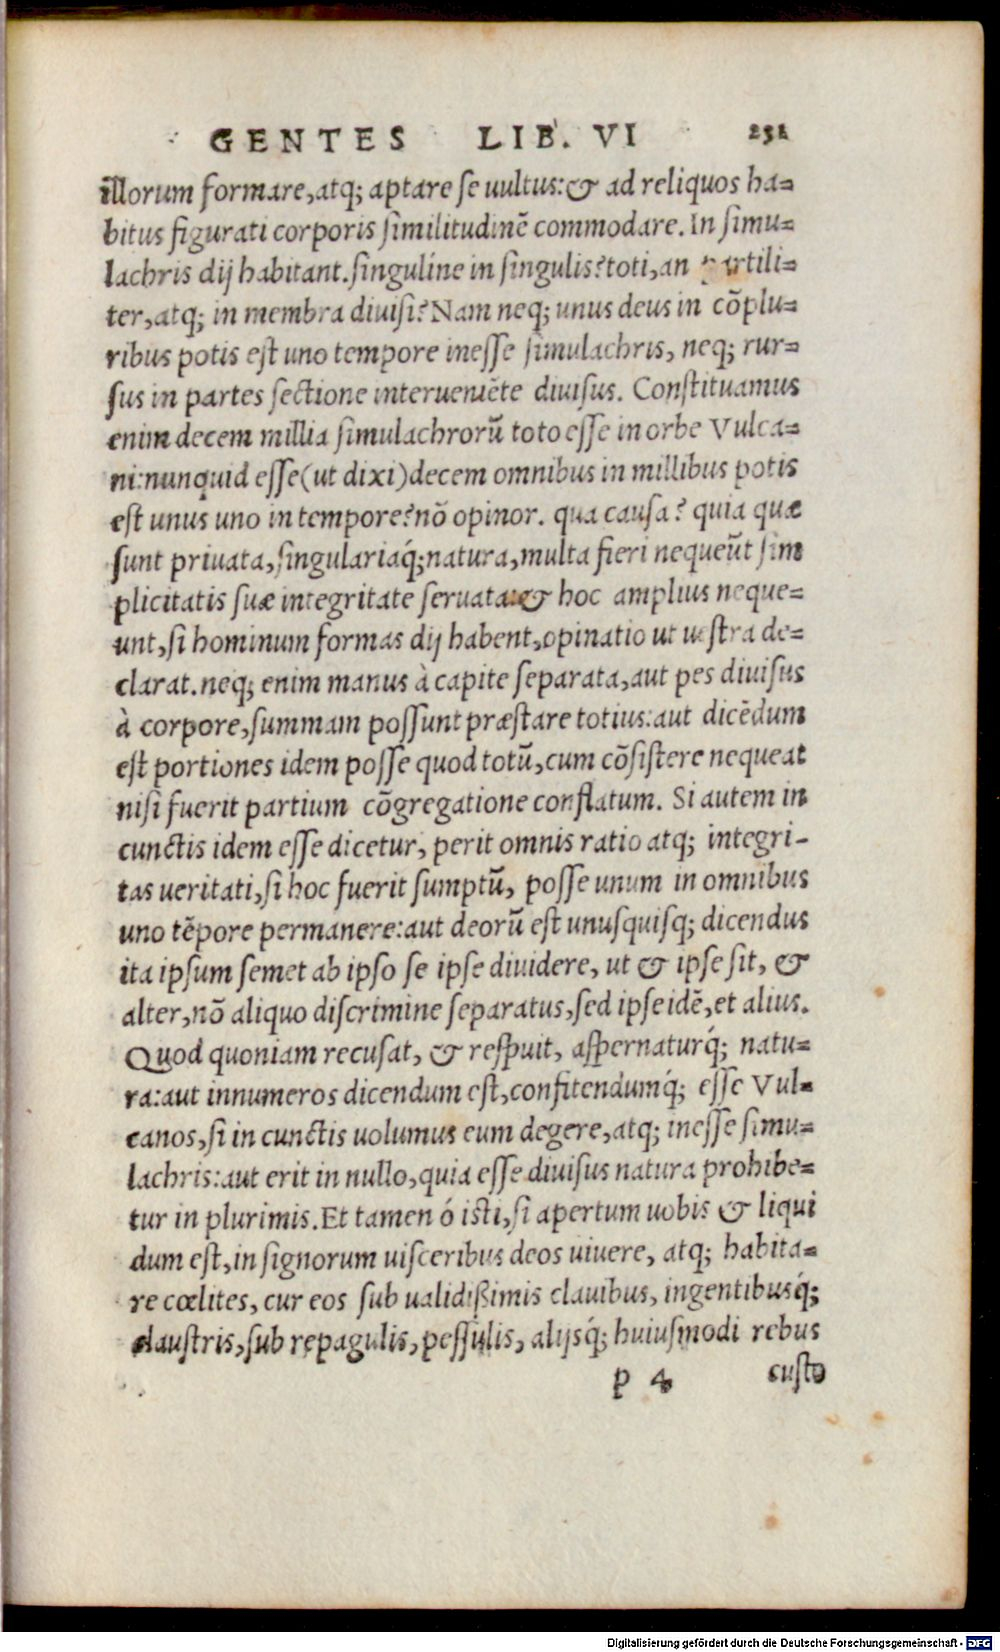 GENTES LIB. VI 231
illorum formare, atq; aptare se uultus: & ad reliquos ha=
bitus figurati corporis similitudinē commodare. In simu=
lachris dij habitant. singuline in singulis? toti, an partili=
ter, atq; in membra diuisi? Nam neq; unus deus in cōplu=
ribus potis est uno tempore inesse simulachris, neq; rur=
sus in partes sectione interueniēte diuisus. Constituamus
enim decem millia simulachrorū toto esse in orbe Vulca=
ni: nunquid esse (ut dixi) decem omnibus in millibus potis
est unus uno in tempore? nō opinor. qua causa? quia quæ
sunt priuata, singulariaq́; natura, multa fieri nequeūt sim
plicitatis suæ integritate seruata: & hoc amplius neque=
unt, si hominum formas dij habent, opinatio ut uestra de=
clarat. neq; enim manus à capite separata, aut pes diuisus
à corpore, summam possunt præstare totius: aut dicēdum
est portiones idem posse quod totū, cum cōsistere nequeat
nisi fuerit partium cōgregatione conflatum. Si autem in
cunctis idem esse dicetur, perit omnis ratio atq; integri-
tas ueritati, si hoc fuerit sumptū, posse unum in omnibus
uno tēpore permanere: aut deorū est unusquisq; dicendus
ita ipsum semet ab ipso se ipse diuidere, ut & ipse sit, &
alter, nō aliquo discrimine separatus, sed ipse idē, et alius.
Quod quoniam recusat, & respuit, aspernaturq́; natu=
ra: aut innumeros dicendum est, confitendumq́; esse Vul=
canos, si in cunctis uolumus eum degere, atq; inesse simu=
lachris: aut erit in nullo, quia esse diuisus natura prohibe=
tur in plurimis. Et tamen ó isti, si apertum uobis & liqui
dum est, in signorum uisceribus deos uiuere, atq; habita=
re cœlites, cur eos sub ualidißimis clauibus, ingentibusq́;
claustris, sub repagulis, pessulis, alijsq́; huiusmodi rebus
p 4 custo
Digitalisierung gefördert durch die Deutsche Forschungsgemeinschaft - DFG